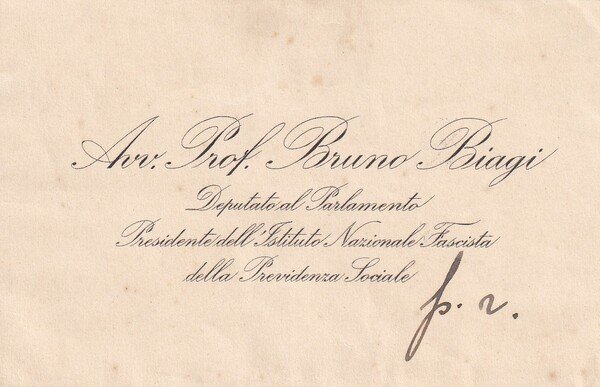 Avv. Prof. Bruno Biagi
Deputato al Parlamento
Presidente dell'Istituto Nazionale Fascista
della Previdenza Sociale
p. r.